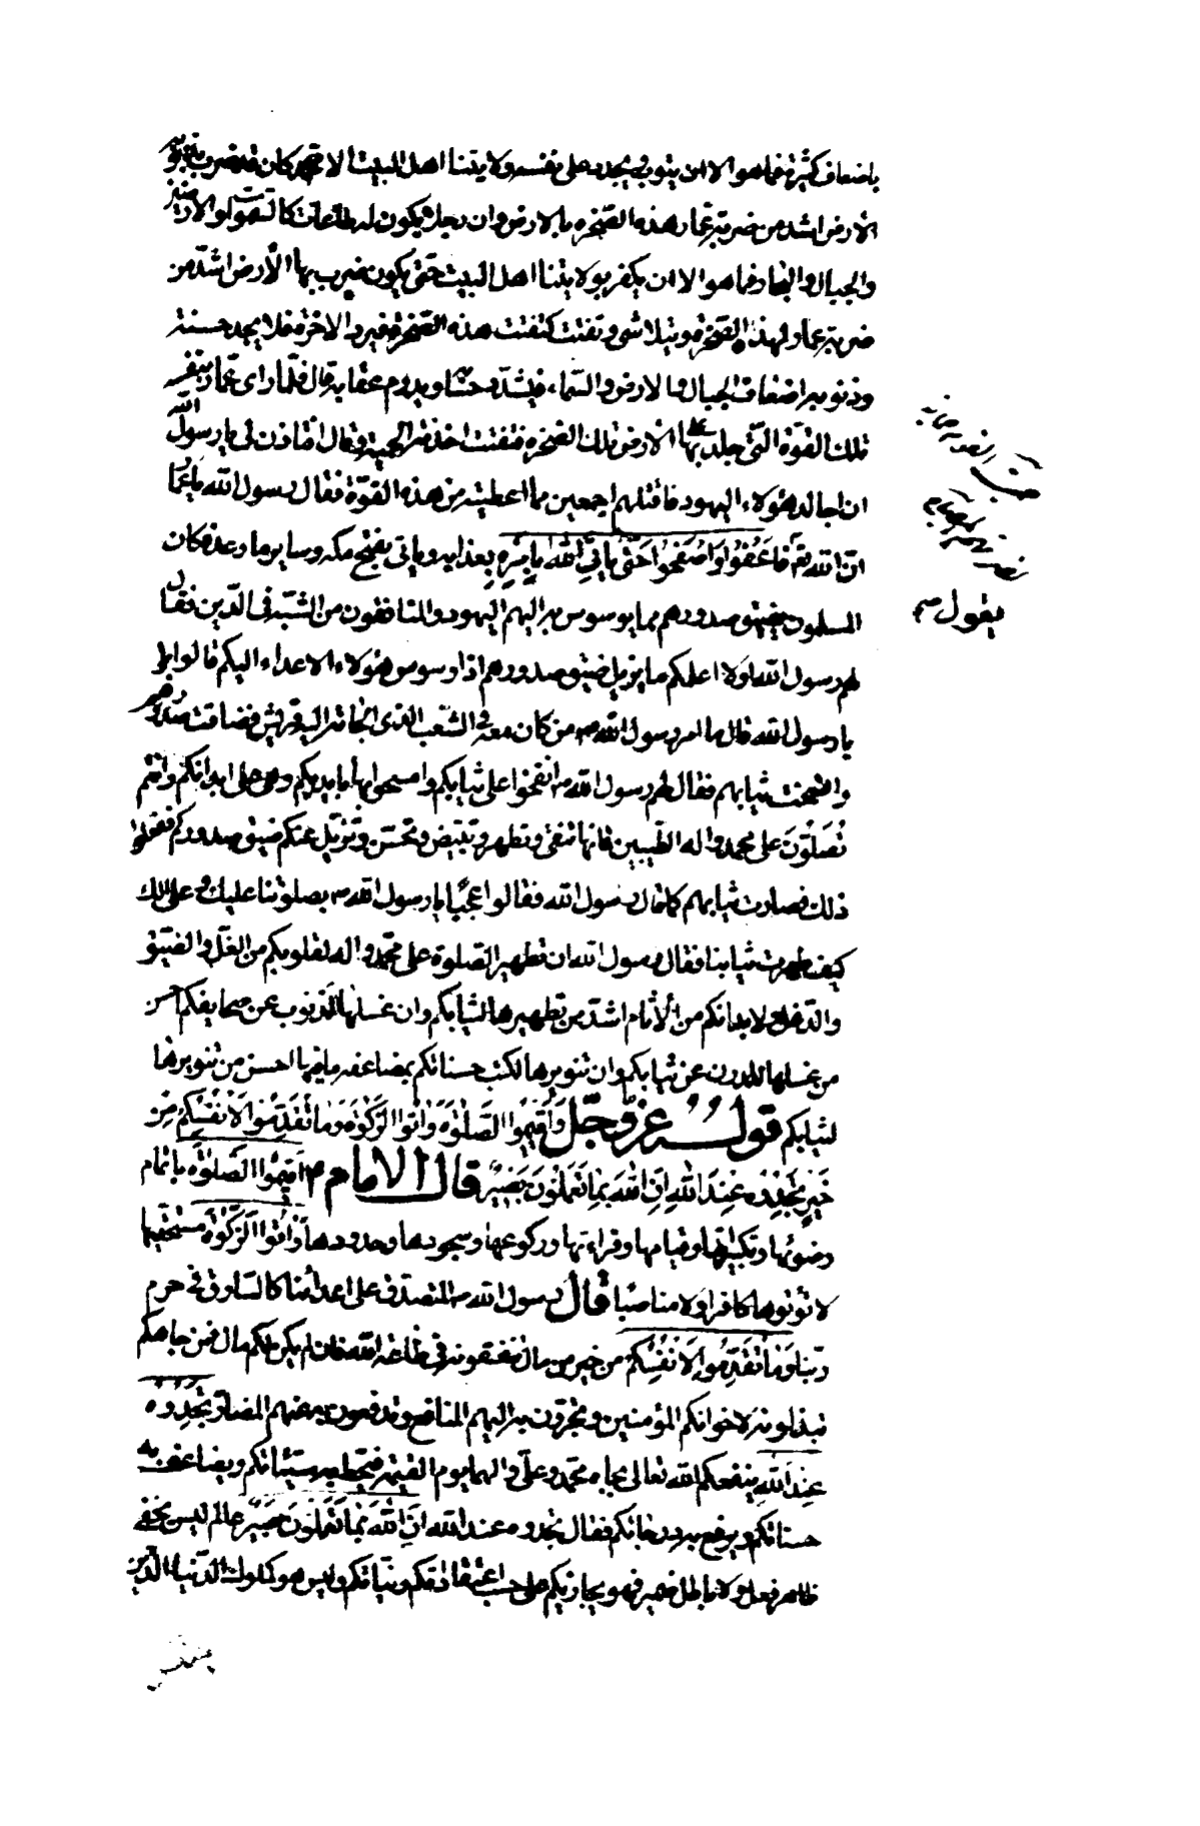 باضعاف كثيرة فما هو الا ان يتوب و يجدد على نفسه ولايتنا اهل البيت الا كان قد ضرب بذنوبه
الأرض اشد من ضرب عمار هذه الصخرة بالارض وان رجلا يكون له طاعات كالسموات والارضين
والجبال والبحار فما هو الا ان يكفر بولايتنا اهل البيت حتى يكون ضرب بها الأرض اشد من
ضرب عمار لهذه الصخرة ويتلاشى وتفتت كتفتت هذه الصخرة فيرد الاخرة فلا يجد حسنة
وذنوبه اضعاف الجبال والارض والسماء فيشدد حسابه ويدوم عقابه قال فلما رأى عمار بنفسه
تلك القوة التى جلد بها الارض تلك الصخرة فتفتت اخذته الحمية وقال اتأذن لى يا رسول الله
ان اجالد هؤلاء اليهود فاقتلهم اجمعين مما اعطيته من هذه القوة فقال رسول الله يا عمار
ان الله يقول فَاعْفُوا وَاصْفَحُوا حَتّى يَأْتِيَ اللهُ بِأَمْرِهِ بعذابه ويأتى بفتح مكه وساير ما وعد فكان
المسلمون يضيق صدورهم مما يوسوس به اليهم اليهود والمنافقون من الشبه فى الدين فقال
لهم رسول الله اولا اعلمكم ما يزيل ضيق صدورهم اذا وسوس هؤلاء الاعداء اليكم قالوا بلى
يا رسول الله قال ما امر رسول الله ص من كان معه فى الشعب الذى الجأته اليه قريش فضاقت صدورهم
واتسخت ثيابهم فقال لهم رسول الله ص انفخوا على ثيابكم وامسحوها بأيديكم وهى على ابدانكم وانتم
تُصَلّونَ على محمد واله الطيبين فانها تنقى وتطهر وتبيض وتحسن وتزيل عنكم ضيق صدوركم ففعلوا
ذلك فصارت ثيابهم كما قال رسول الله فقالوا عجبًا يا رسول الله ص بصلوتنا عليك و على الك
كيف طهرت ثيابنا فقال رسول الله ان تطهير الصلوة على محمد و اله لقلوبكم من الغل والضيق
والدغل ولابدانكم من الأثام اشد من تطهيرها لثيابكم وان غسلها للذنوب عن صحايفكم احسن
من غسلها للدرن عن ثيابكم وان تنويرها لكتب حسناتكم بمضاعفه ما فيها احسن من تنويرها
لثيابكم قوله عزّ وجلّ وَأَقيمُوا الصَّلوةَ وَاتُوا الزَّكوةَ وَمَا تُقَدِّمُوا لِأَنْفُسِكُمْ مِن
خَيرٍ تَجِدُوهُ عِندَ اللهِ اِنَّ اللهَ بِمَا تَعْمَلُونَ بَصيرٌ قال الامام ع اَقيمُوا الصَّلوةَ باتمام
وضوئها وتكبيراتها وقيامها وقراءتها وركوعها وسجودها وحدودها وَاتُوا الزَّكوةَ مستحقيها
لا تؤتوها كافرا ولا مناصبًا قال رسول الله ص المتصدق على اعدائنا كالسارق فى حرم
ربنا وَمَا تُقَدِّمُوا لِأَنْفُسِكُمْ من خير من مال تنفقونه فى طاعة الله فان لم يكن لكم مال فمن جاهكم
تبذلونه لاخوانكم المؤمنين وتجرون به اليهم المنافع وتدفعون به عنهم المضار تَجِدُوهُ
عِندَ اللهِ ينفعكم الله تعالى بجاه محمد وعلى والهما يوم القيمة فيحط به سيئاتكم ويضاعف به
حسناتكم ويرفع به درجاتكم فقال تجدوه عند الله اِنَّ اللهَ بِمَا تَعْمَلُونَ بَصيرٌ عالم ليس يخفى
ظاهر فعل ولا باطل ضمير فهو يجازيكم على حسب اعتقاداتكم ونياتكم وليس هو كملوك الدنيا الذين
يقول ص